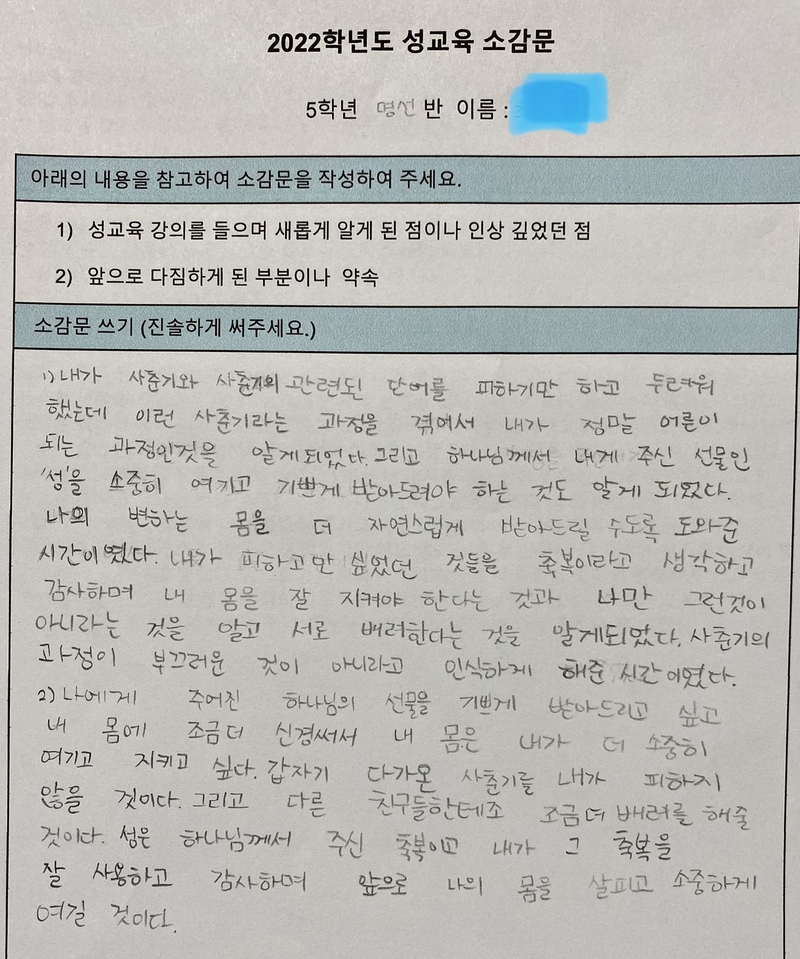 2022학년도 성교육 소감문
5학년 명선 반 이름 :
아래의 내용을 참고하여 소감문을 작성하여 주세요.
1) 성교육 강의를 들으며 새롭게 알게 된 점이나 인상 깊었던 점
2) 앞으로 다짐하게 된 부분이나 약속
소감문 쓰기 (진솔하게 써주세요.)
1) 내가 사춘기와 사춘기의 관련된 단어를 피하기만 하고 두려워
했는데 이런 사춘기라는 과정을 겪여서 내가 정말 어른이
되는 과정인것을 알게되었다. 그리고 하나님께서 내게 주신 선물인
'성'을 소중히 여기고 기쁘게 받아드려야 하는 것도 알게 되었다.
나의 변하는 몸을 더 자연스럽게 받아드릴 수도록 도와준
시간이였다. 내가 피하고만 싶었던 것들을 축복이라고 생각하고
감사하며 내 몸을 잘 지켜야 한다는 것과 나만 그런것이
아니라는 것을 알고 서로 배려한다는 것을 알게되었다. 사춘기의
과정이 부끄러운 것이 아니라고 인식하게 해준 시간이였다.
2) 나에게 주어진 하나님의 선물을 기쁘게 받아드리고 싶고
내 몸에 조금더 신경써서 내 몸은 내가 더 소중히
여기고 지키고 싶다. 갑자기 다가온 사춘기를 내가 피하지
않을 것이다. 그리고 다른 친구들한테조 조금더 배려를 해줄
것이다. 성은 하나님께서 주신 축복이고 내가 그 축복을
잘 사용하고 감사하며 앞으로 나의 몸을 살피고 소중하게
여길 것이다.